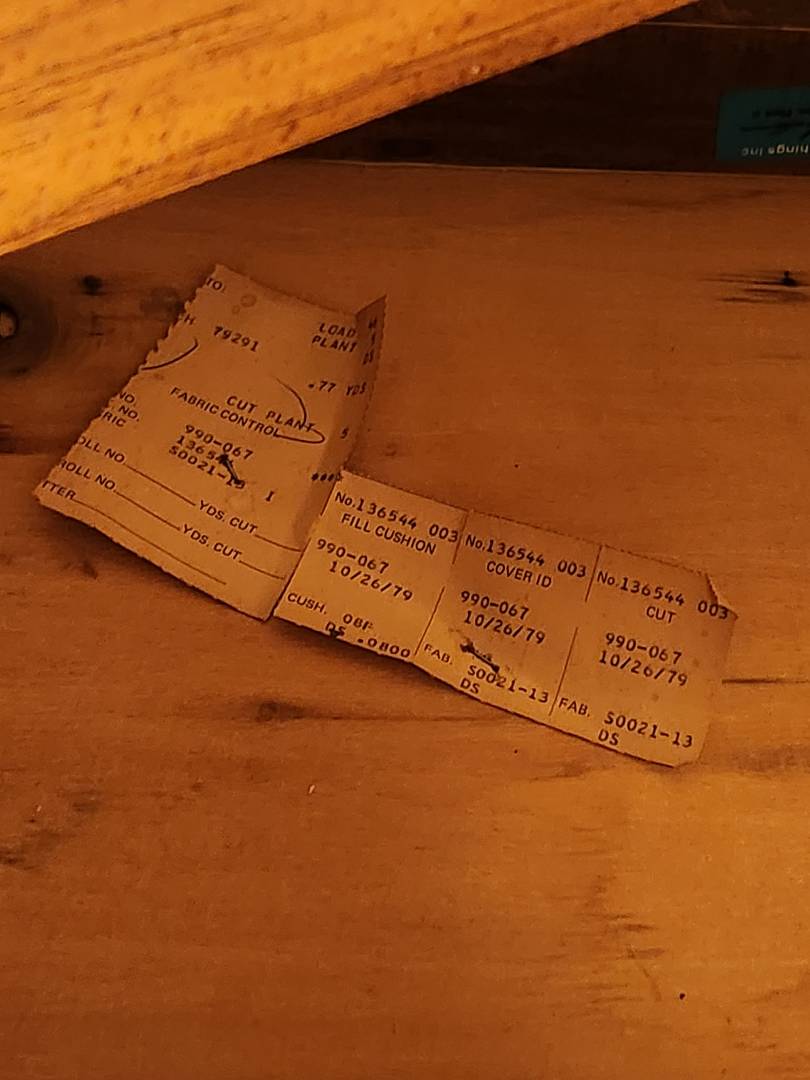 TO:
LOAD
79291
PLANT
DS
.77 YDS
CUT PLANT
FABRIC CONTROL
5
NO.
990-067
NO.
S0021-13 I
ROLL NO. YDS. CUT
ROLL NO. YDS. CUT
No.136544 003
FILL CUSHION
990-067
10/26/79
CUSH. 08F
DS .0800
No.136544 003
COVER ID
990-067
10/26/79
FAB. S0021-13
DS
No.136544 003
CUT
990-067
10/26/79
FAB. S0021-13
DS